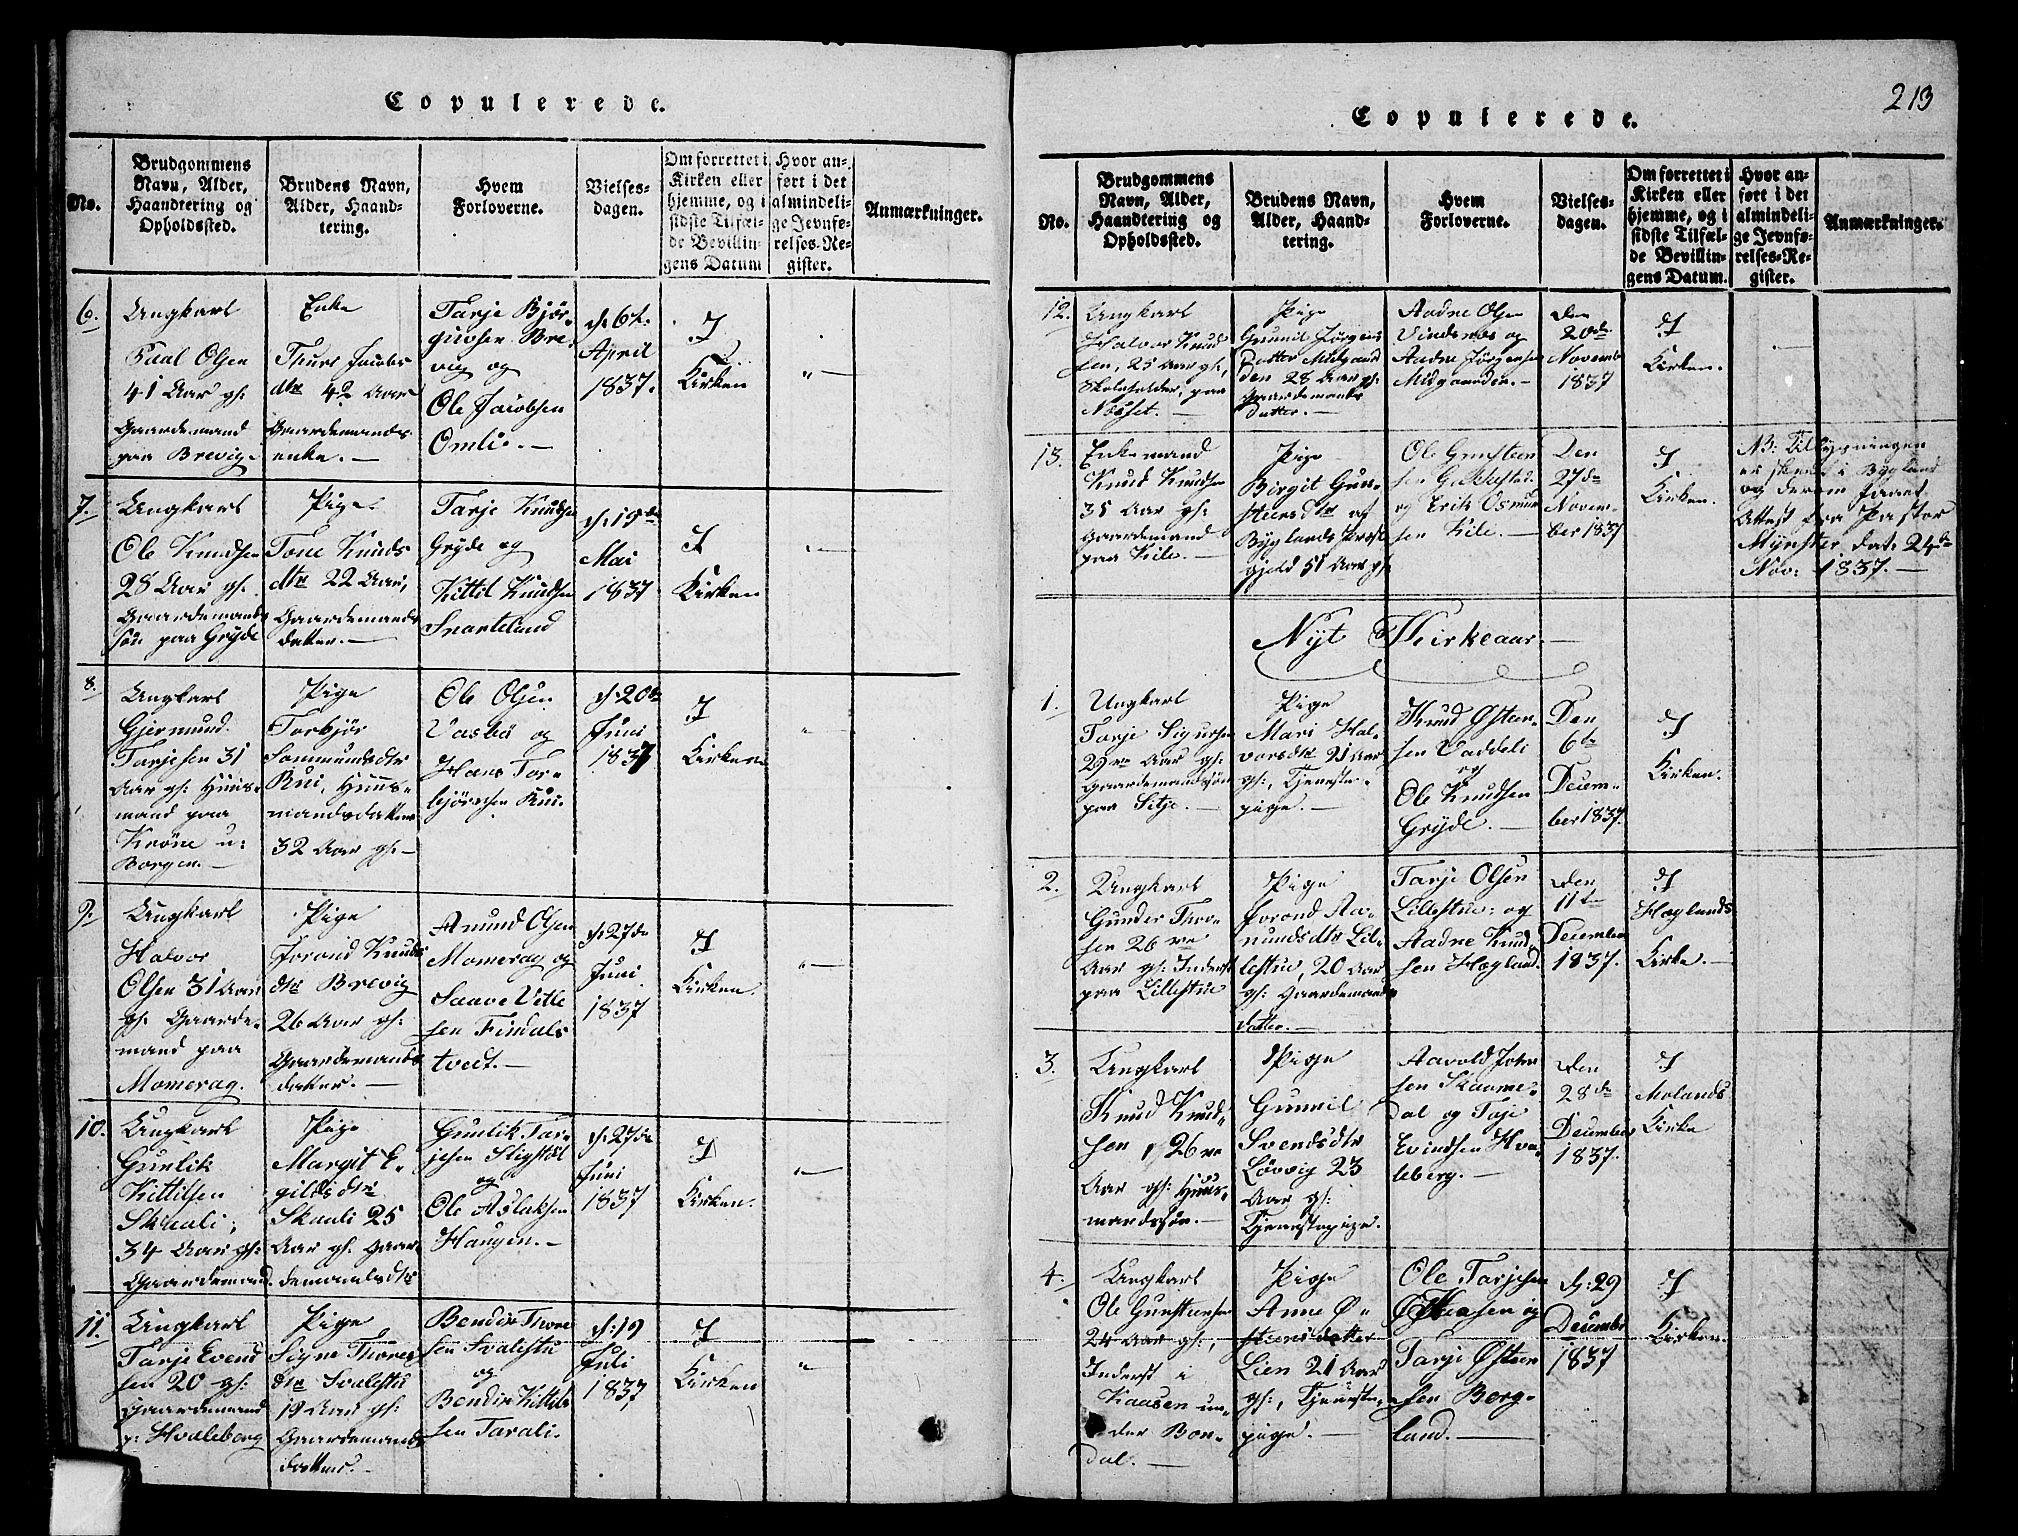 Copulerede.
No.
Brudgommens
Navn, Alder,
Haandtering og
Opholdssted.
Brudens Navn,
Alder, Haand-
tering.
Hvem
Forloverne.
Vielses-
dagen.
Om forrettet i
Kirken eller
hjemme, og i
sidste Tilfæl-
de Bevillin-
gens Datum
Hvor an-
ført i det
almindeli-
ge Jevnfø-
relses-Re-
gister.
Anmærkninger.
6.
Ungkarl
Paal Olsen
41 Aar gl:
Gaardemand
paa Brevig.
Enke
Thure Jacobs
dtr 42 Aar
Gaardemands
enke.
Tarje Bjør-
gufsen Bre-
vig og
Ole Jacobsen
Omli.
d: 6t.
April
1837.
I
Kirken
"
7.
Ungkarl
Ole Knudsen
28 Aar gl:
Gaardemands
søn paa Gryde
Pige
Tone Knuds
dtr 22 Aar,
Gaardemands
datter.
Tarje Knudsen
Gryde og
Kittil Knudsen
Snarteland
d: 15de
Mai
1837
I
Kirken
"
8.
Ungkarl
Gjermund
Tarjesen 31
Aar gl: Huus-
mand paa
Krone u:
Borgen.
Pige
Torbjør
Sommundsdtr
Rui, Huus-
mandsdatter
32 Aar gl:
Ole Olsen
Vasbø og
Hans Tor-
bjørnsen Rui.
d: 20de
Juni
1837
I
Kirken
"
9.
Ungkarl
Halvor
Olsen 31 Aar
gl: Gaarde-
mand paa
Momerag.
Pige
Jorond Knuds
dtr Brevig
26 Aar gl:
Gaardemands
datter.
Amund Olsen
Momerag og
Saave Ville
sen Findals
tvedt.
d: 27de
Juni
1837
I
Kirken.
"
10.
Ungkarl
Gunlik
Kittilsen
Skuli,
34 Aar gl:
Gaardemand.
Pige
Margit E-
gildsdtr
Skuli 25
Aar gl: Gaar
demandsdtr
Gunlik Tar-
jesen Stigstøl
og
Ole Aslaksen
Haugen.
d: 27de
Juni
1837
I
Kirken.
"
11.
Ungkarl
Tarje Evend
sen 20 gl:
Gaardemand
p: Hvaleberg
Pige
Signe Thores
dtr Svalestu
19 Aar gl:
Gaardemands
datter.
Bendix Thore
sen Svalestu
og
Bendix Kittils
sen Tarali.
d: 19
Juli
1837
I
Kirken
"
213
Copulerede.
No.
Brudgommens
Navn, Alder,
Haandtering og
Opholdssted.
Brudens Navn,
Alder, Haand-
tering.
Hvem
Forloverne.
Vielses-
dagen.
Om forrettet i
Kirken eller
hjemme, og i
sidste Tilfæl-
de Bevillin-
gens Datum.
Hvor an-
ført i det
almindeli-
ge Jevnfø-
relses-Re-
gister.
Anmærkninger.
12.
Ungkarl
Halvor Knud
sen, 25 Aar gl:,
Skoleholder, paa
Næsset.
Pige
Gunnil Jørgens
datter Midgaard
den 28 Aar gl:
Gaardemands
datter.
Aadne Olsen
Vindsnæs og
Aadne Jørgensen
Midgaarden.
Den
20de
Novemb
1837
I
Kirken.
13.
Enkemand
Knud Knudsen
35 Aar gl:
Gaardemand
paa Kile.
Pige
Birgit Gun-
steensdtr af
Byglands Præst
gjeld 51 Aar gl:
Ole Gunsteen
sen Gakkestad
og Erik Osmun
sen Kile.
Den
27de
Novem-
ber 1837
I
Kirken.
NB: Tillysningen
er skeet i Bygland
og derom faaet
Attest fra Pastor
Mynster dat: 24de
Nov: 1837.
Nyt Kirkeaar.
1.
Ungkarl
Tarje Sigursen
29 Aar gl:
Gaardemandssøn
paa Sitje.
Pige
Mari Hal-
vorsdtr 21 Aar
gl:, Tjeneste-
pige.
Knud Østen-
sen Vaddeli
og
Ole Knudsen
Gryde.
Den
6te
Decem-
ber 1837.
I
Kirken.
2.
Ungkarl
Gunder Thor-
sen 26
Aar gl: Inderst
paa Lillestue
Pige
Jorond Aa-
nundsdtr Lil-
lestue, 20 Aar
gl: Gaardemands
datter.
Tarje Olsen
Lillestue og
Aadne Knud-
sen Høgland.
Den
11te
December
1837.
I
Høglands
Kirke.
3.
Ungkarl
Knud Knud-
sen, 26
Aar gl: Huus-
mandssøn.
Pige
Gunvil
Svendsdtr
Løvvig 23
Aar gl:
Tjenestepige.
Aavold John
sen Skaame-
dal og Taje
Evindsen Hva-
leberg.
Den
28de
December
1837.
I
Molands
Kirke
4.
Ungkarl
Ole Gunsteensen
24 Aar gl:,
Inderst i
Kaasen un-
der Bon-
dal.
Pige
Anne Ø-
steensdatter
Lien 21 Aar
gl:, Tjeneste-
pige.
Ole Tarjesen
Kaasen og
Tarje Østen
sen Berg-
land.
d: 29
Decembr
1837
I
Kirken.